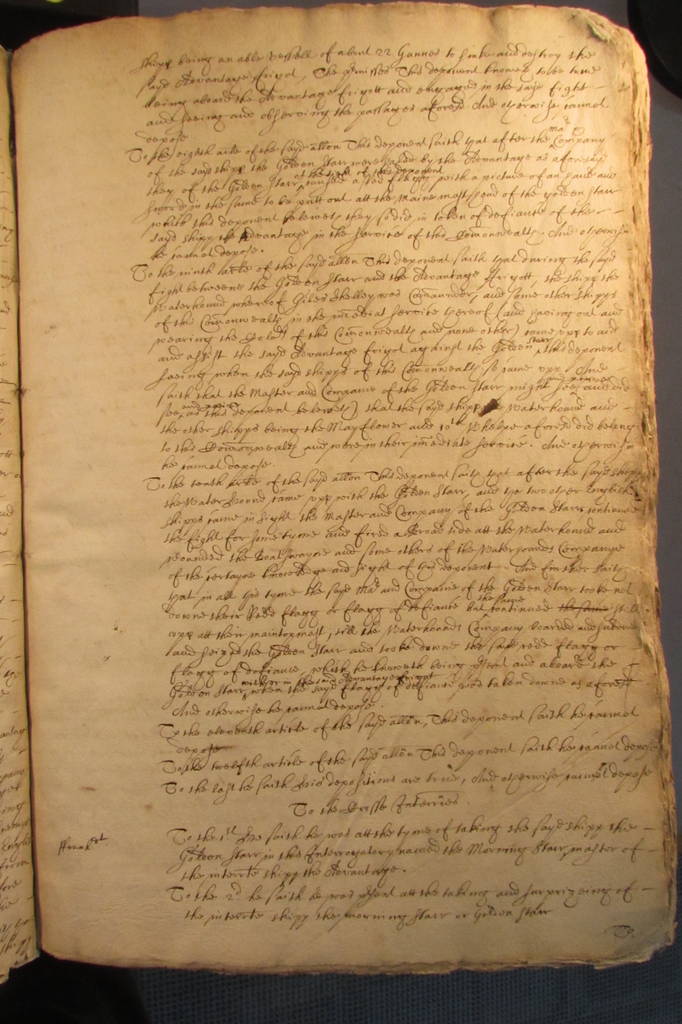 shipp being an able vessell of about 22 Gunnes to sinke and destroy the
sayd Advantage frigot, The premisses This deponent knoweth to be true
being aboard the Advantage frigott and engaged in the sayd fight
and seeing and observing the passages aforesd And otherwise cannot
depose
To the eighth arle of the sayd allon This deponent saith that after the mar & Company
of the sayd shipp the Golden Starr were hailed by the Advantage as aforesayd
they of the Golden Starr, caused a red flagg with a picture of an arme and
at the sight of this deponent
sword in the same to be putt out att the Maine mast head of the Golden Starr
which this deponent beleeveth they so did in token of defiance of the
sayd shipp the Advantage in the service of this Comonwealth. And otherwise
he cannot depose.
To the ninth arle of the sayd allon This deponent saith that during the sayd
fight betweene the Golden Starr and the Advantage frigott, the shipp the
Waterhound whereof Giles Shelley was Comander, and some other shipps
of this Comonwealth in the imediat service thereof (and having out and
wearing the Colours of this Comonwealth and none other) came upp to aid
and assist the sayd Advantage frigot against the Golden Starr, this deponent
seeing when the sayd shipps of this Comonwealth so came upp, And
saith that the Master and Companie of the Golden Starr might
see, as this deponent beleeveth) that the sayd shipp Waterhound and
the other shipps being the May flower and 10th Whelpe aforesd did belong
to this Comonwealth and were in their imediate service. And otherwise
he cannot depose
To the tenth arle of the sayd allon This deponent saith that after the sayd shipp
the Water hound came upp with the Golden Starr, and the two other English
shipps came in sight the Master and Company of the Golden Starr continued
the fight for some tyme and fired a broad side att the Waterhound and
wounded the Boatswayne and some others of the Waterhounds Companye
of the certayne knowledge and sight of this deponent. And further saith
that in all the tyme the sayd Mar and Companie of the Golden Starr tooke not
downe their Redd flagg or flagg of defiance but continued the same still
upp att their maintopmast, till the Waterhounds Company boarded and entered
and seized the Golden Starr and tooke downe the said redd flagg or
flagg of defiance, which he knoweth being present and aboard the
Golden Starr, when the sayd flagg of defiance was taken downe as aforesd
with in the said Advantage frigott
And otherwise he cannot depose.
To the eleventh article of the sayd allon, This deponent saith he cannot
depose
To the twelfth article of the sayd allon This deponent saith he cannot depose
To the last he saith his depositions are true, And otherwise cannot depose
To the Crosse Interries.
To the 1st he saith he was att the tyme of taking the sayd shipp the
Golden Starr, in this Interrogatory named the Morning Starr, master of
the interrte shipp the Advantage.
To the 2d he saith he was present att the taking and surprizeing of
the interrte shipp the morning Starr or Golden Starr
To